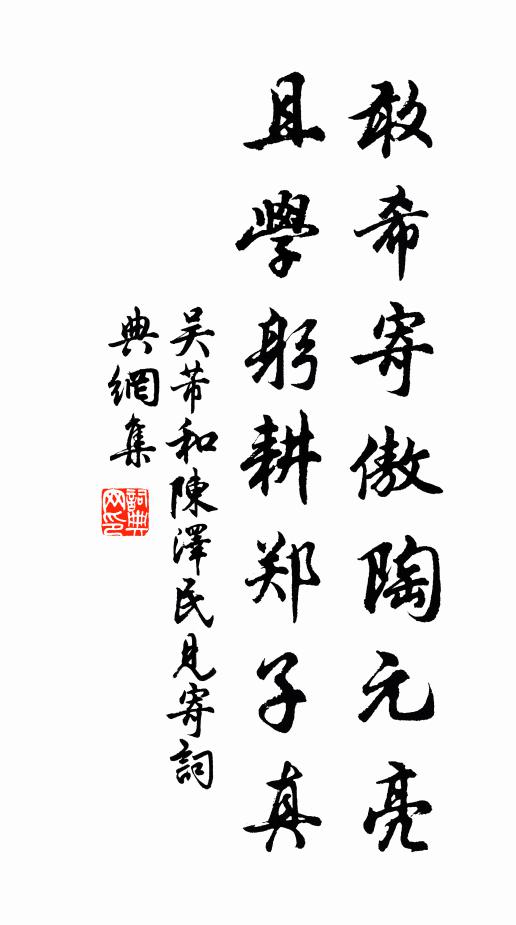 敢希寄傲陶元亮
且學躬耕郑子真
吴芾和陳澤民見寄詞
典網集
詞典網印